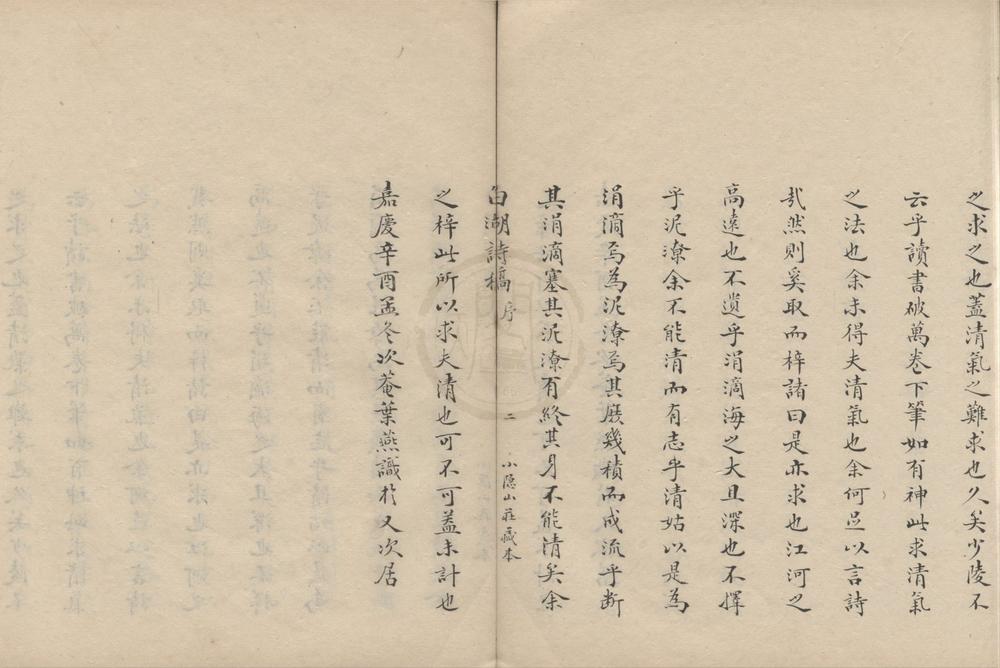 之求之也蓋清氣之難求也久矣少陵不
云乎讀書破萬卷下筆如有神此求清氣
之法也余未得夫清氣也余何足以言詩
哉然則奚取而梓諸曰是亦求也江河之
高遠也不遺乎涓滴海之大且深也不擇
乎泥潦余不能清而有志乎清姑以是為
涓滴焉為泥潦焉其庶幾積而成流乎斷
其涓滴塞其泥潦有終其身不能清矣余
白湖詩稿 序 二 小隱山莊藏本
之梓此所以求夫清也可不可蓋未計也
嘉慶辛酉孟冬次菴葉燕識於又次居